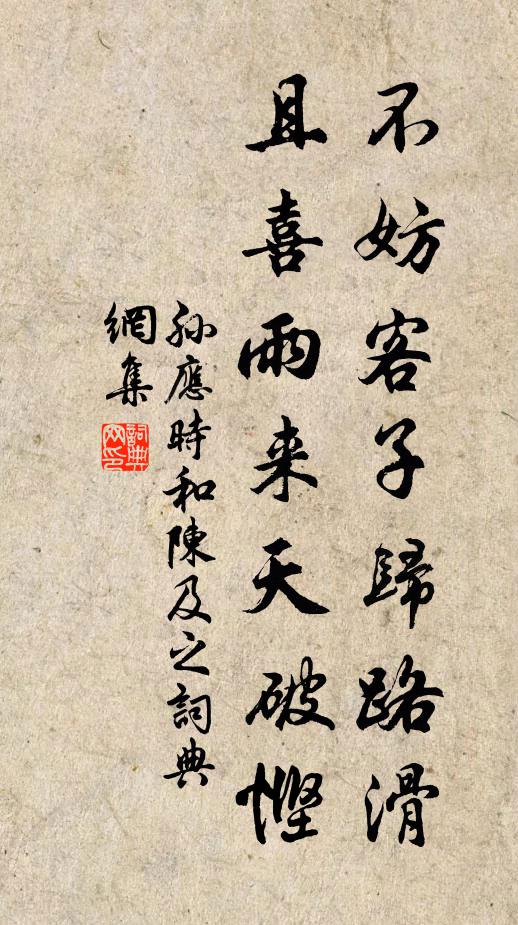 不妨客子歸路滑
且喜雨来天破慳
孫應時和陳及之詞典
網集
詞典網印